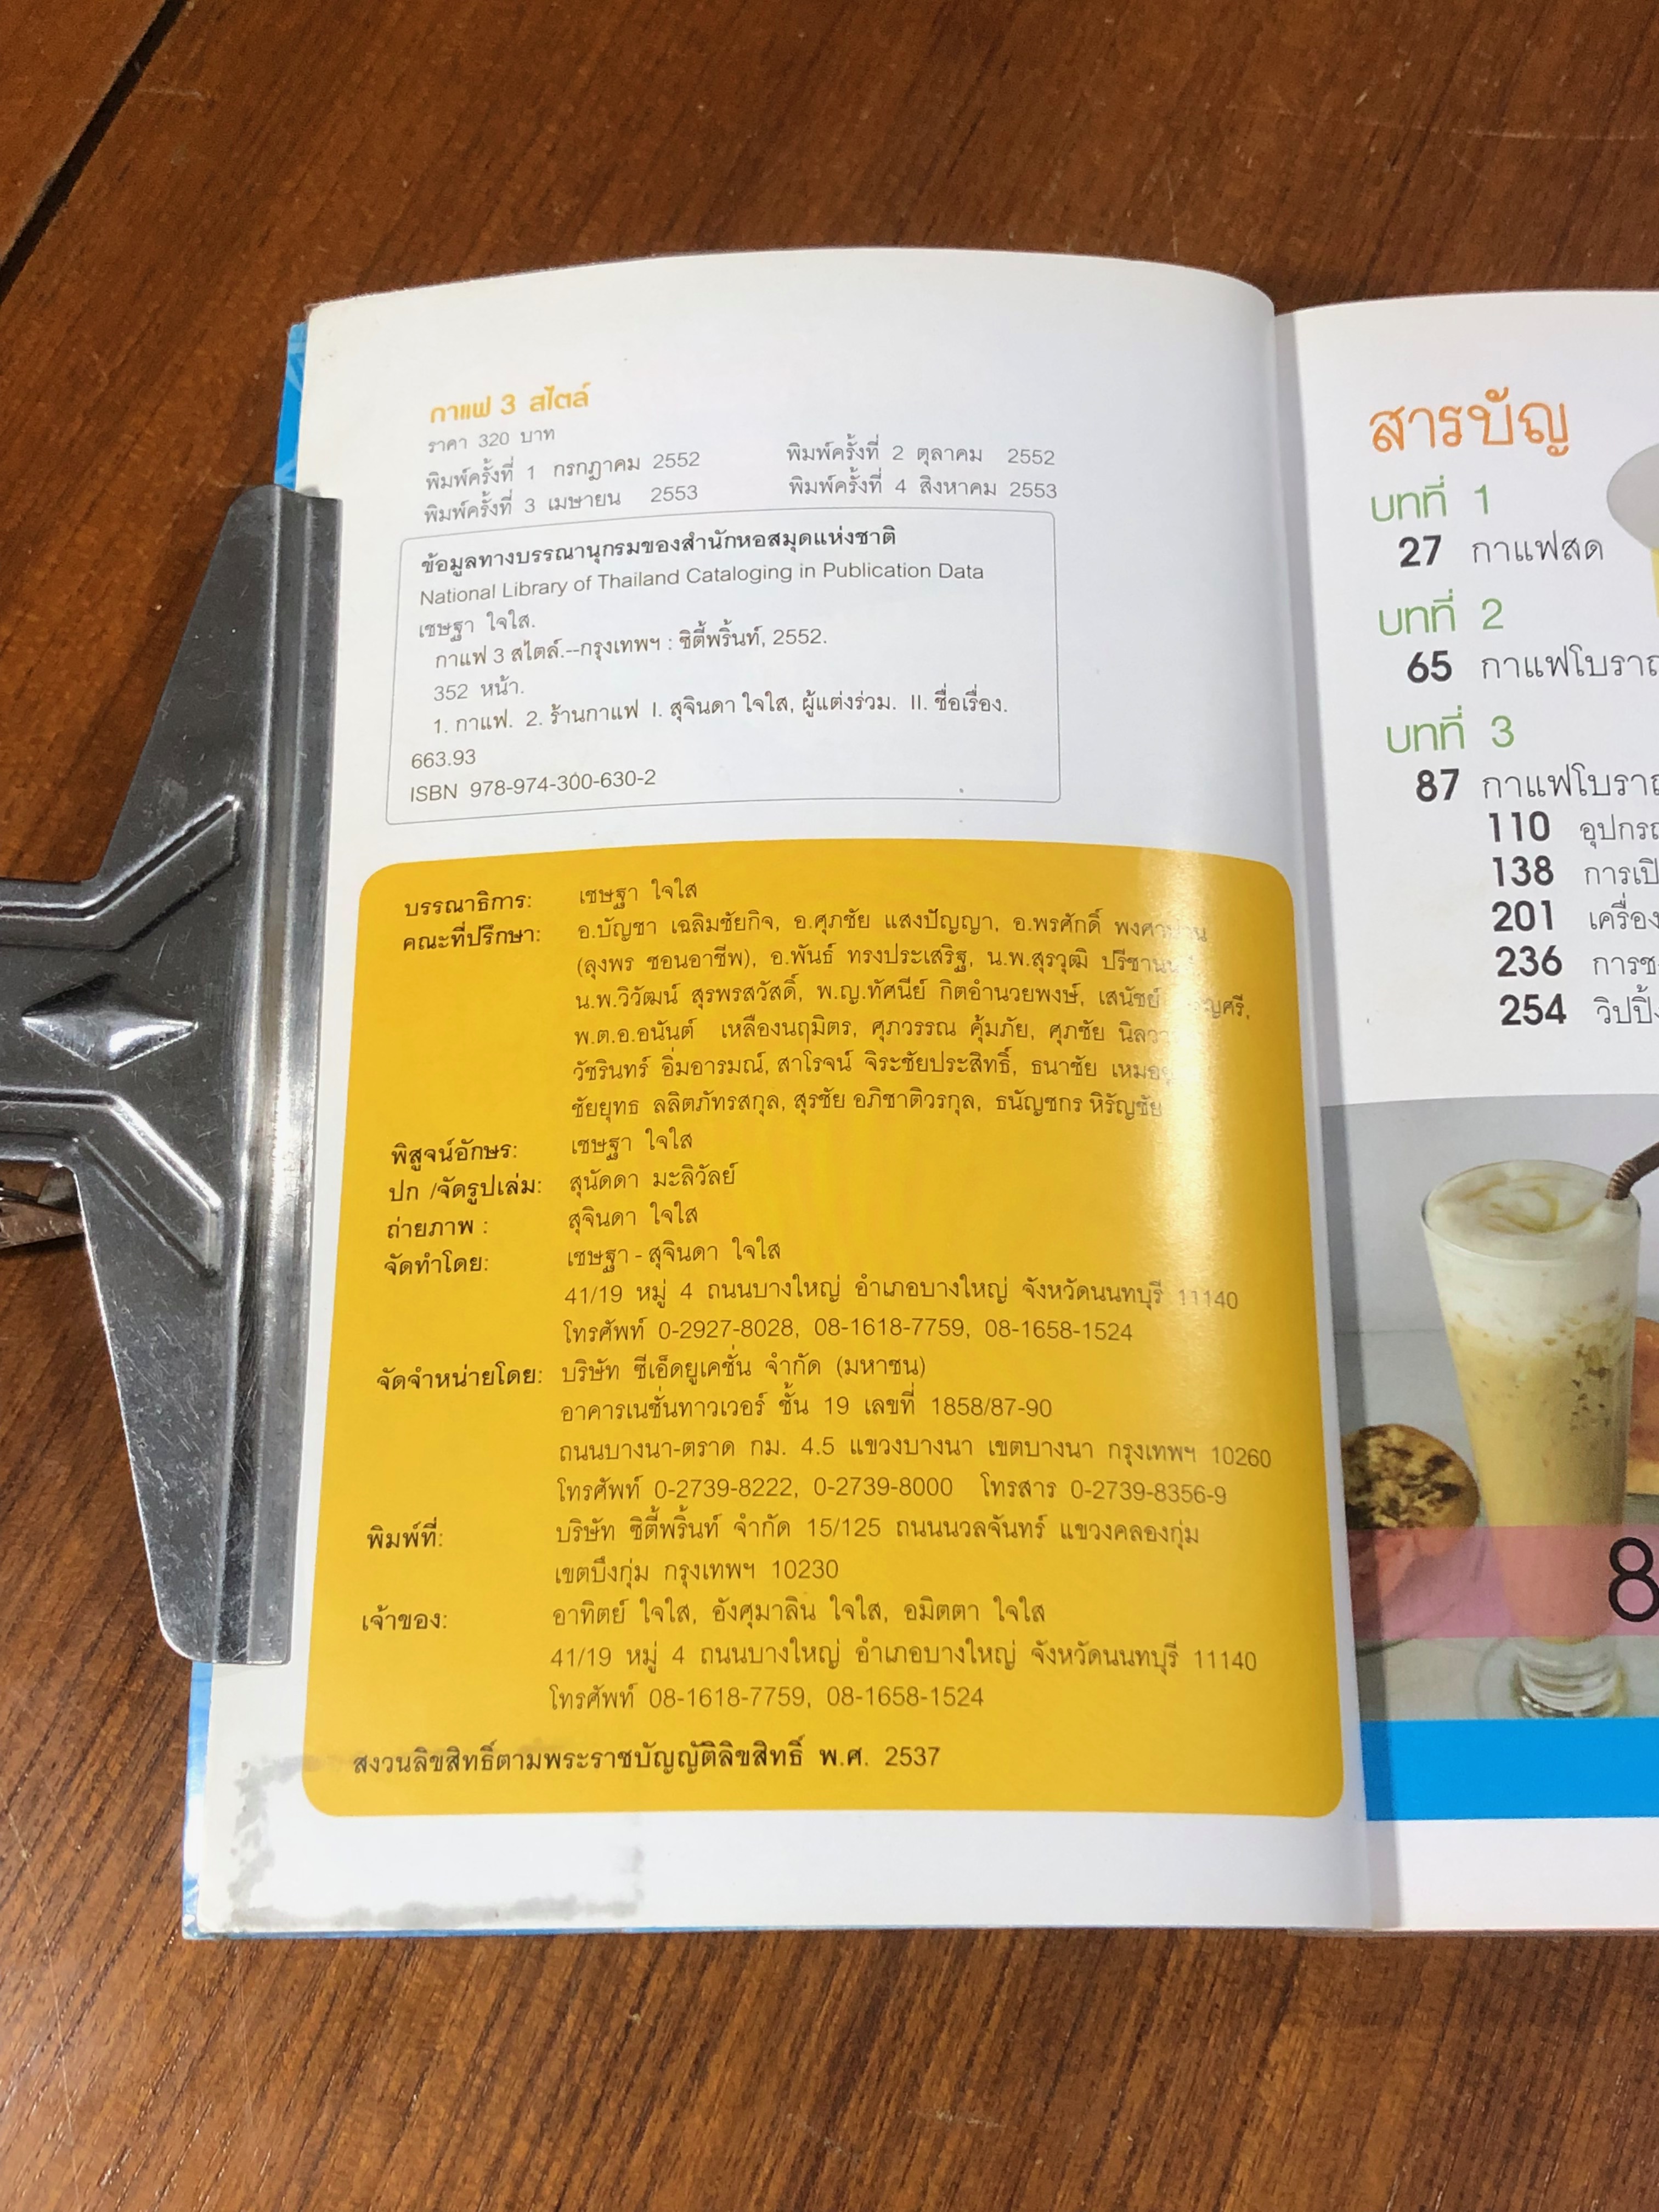 กาแฟ 3 สไตล์
ราคา 320 บาท
พิมพ์ครั้งที่ 1 กรกฎาคม 2552 พิมพ์ครั้งที่ 2 ตุลาคม 2552
พิมพ์ครั้งที่ 3 เมษายน 2553 พิมพ์ครั้งที่ 4 สิงหาคม 2553
ข้อมูลทางบรรณานุกรมของสำนักหอสมุดแห่งชาติ
National Library of Thailand Cataloging in Publication Data
เชษฐา ใจใส.
กาแฟ 3 สไตล์.--กรุงเทพฯ : ซิตี้พริ้นท์, 2552.
352 หน้า.
1. กาแฟ. 2. ร้านกาแฟ I. สุจินดา ใจใส, ผู้แต่งร่วม. II. ชื่อเรื่อง.
663.93
ISBN 978-974-300-630-2
บรรณาธิการ: เชษฐา ใจใส
คณะที่ปรึกษา: อ.บัญชา เฉลิมชัยกิจ, อ.ศุภชัย แสงปัญญา, อ.พรศักดิ์
(ลุงพร ซอนอาชีพ), อ.พันธ์ ทรงประเสริฐ, น.พ.สุรวุฒิ
น.พ.วิวัฒน์ สุรพรสวัสดิ์, พ.ญ.ทัศนีย์ กิตอำนวยพงษ์, เสนัชย์
พ.ต.อ.อนันต์ เหลืองนฤมิตร, ศุภวรรณ คุ้มภัย, ศุภชัย
วัชรินทร์ อิ่มอารมณ์, สาโรจน์ จิระชัยประสิทธิ์, ธนาชัย
ชัยยุทธ ลลิตภัทรสกุล, สุรชัย อภิชาติวรกุล, ธนัญชกร หิรัญชัย
พิสูจน์อักษร: เชษฐา ใจใส
ปก /จัดรูปเล่ม: สุนัดดา มะลิวัลย์
ถ่ายภาพ : สุจินดา ใจใส
จัดทำโดย: เชษฐา - สุจินดา ใจใส
41/19 หมู่ 4 ถนนบางใหญ่ อำเภอบางใหญ่ จังหวัดนนทบุรี 11140
โทรศัพท์ 0-2927-8028, 08-1618-7759, 08-1658-1524
จัดจำหน่ายโดย: บริษัท ซีเอ็ดยูเคชั่น จำกัด (มหาชน)
อาคารเนชั่นทาวเวอร์ ชั้น 19 เลขที่ 1858/87-90
ถนนบางนา-ตราด กม. 4.5 แขวงบางนา เขตบางนา กรุงเทพฯ 10260
โทรศัพท์ 0-2739-8222, 0-2739-8000 โทรสาร 0-2739-8356-9
พิมพ์ที่: บริษัท ซิตี้พริ้นท์ จำกัด 15/125 ถนนนวลจันทร์ แขวงคลองกุ่ม
เขตบึงกุ่ม กรุงเทพฯ 10230
เจ้าของ: อาทิตย์ ใจใส, อังศุมาลิน ใจใส, อมิตตา ใจใส
41/19 หมู่ 4 ถนนบางใหญ่ อำเภอบางใหญ่ จังหวัดนนทบุรี 11140
โทรศัพท์ 08-1618-7759, 08-1658-1524
สงวนลิขสิทธิ์ตามพระราชบัญญัติลิขสิทธิ์ พ.ศ. 2537
สารบัญ
บทที่ 1
27 กาแฟสด
บทที่ 2
65 กาแฟโบราณ
บทที่ 3
87 กาแฟโบราณ
110
138
201
236
254
8